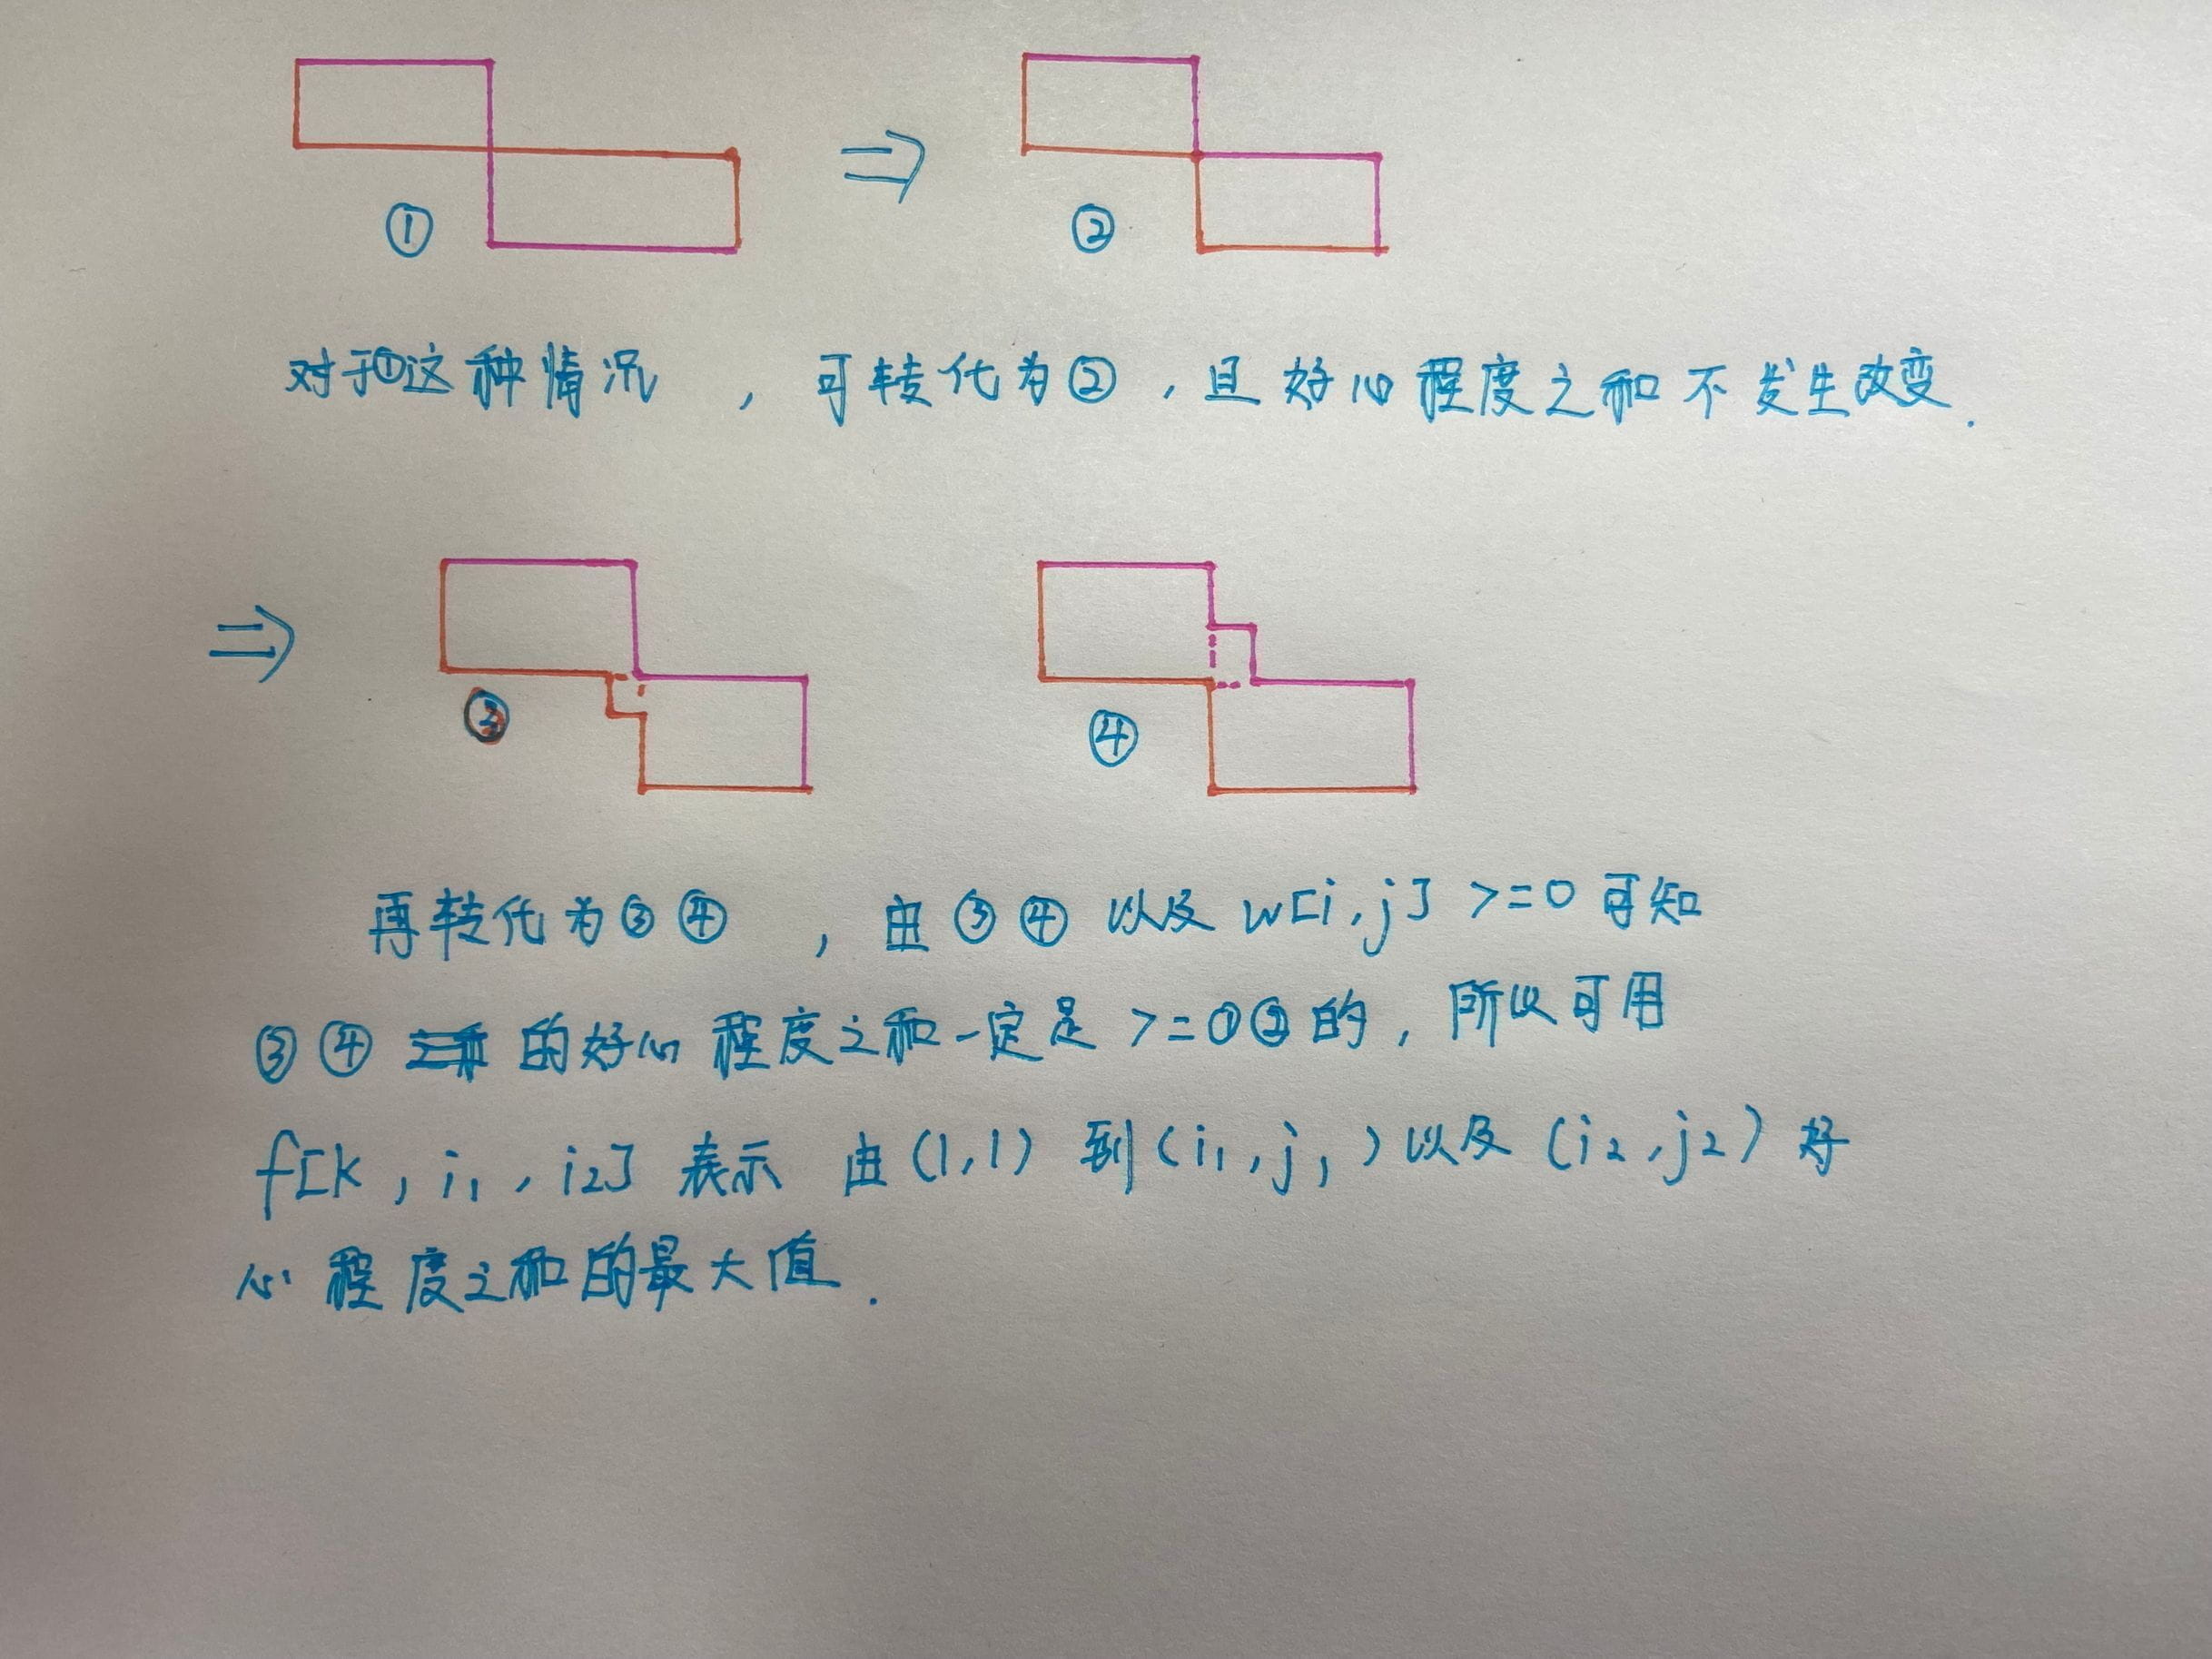 ① ②
对于①这种情况 , 可转化为② , 且好心程度之和不发生改变.
③ ④
再转化为③④ , 由③④以及w[i,j] >=0可知
③④的好心程度之和一定是>=①②的, 所以可用
f[k, i₁, i₂] 表示 由(1,1) 到(i₁,j₁)以及(i₂,j₂)好
心程度之和的最大值.